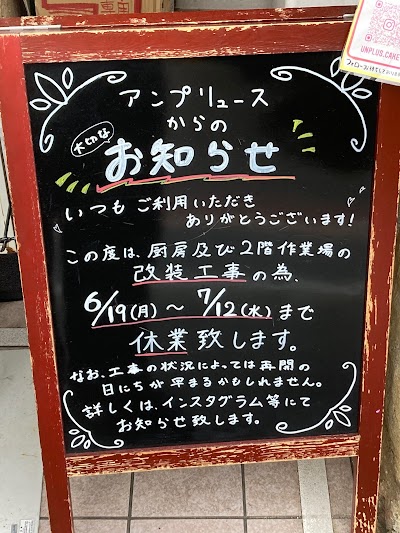 アンプリュース
からの
大切な
お知らせ
いつも ご利用いただき
ありがとうございます!
この度は、厨房及び2階作業場の
改装工事の為、
6/19(月)〜7/12(水)まで
休業致します。
なお、工事の状況によっては再開の
日にちが早まるかもしれません。
詳しくは、インスタグラム等にて
お知らせ致します。
UNPLUS.CAKE